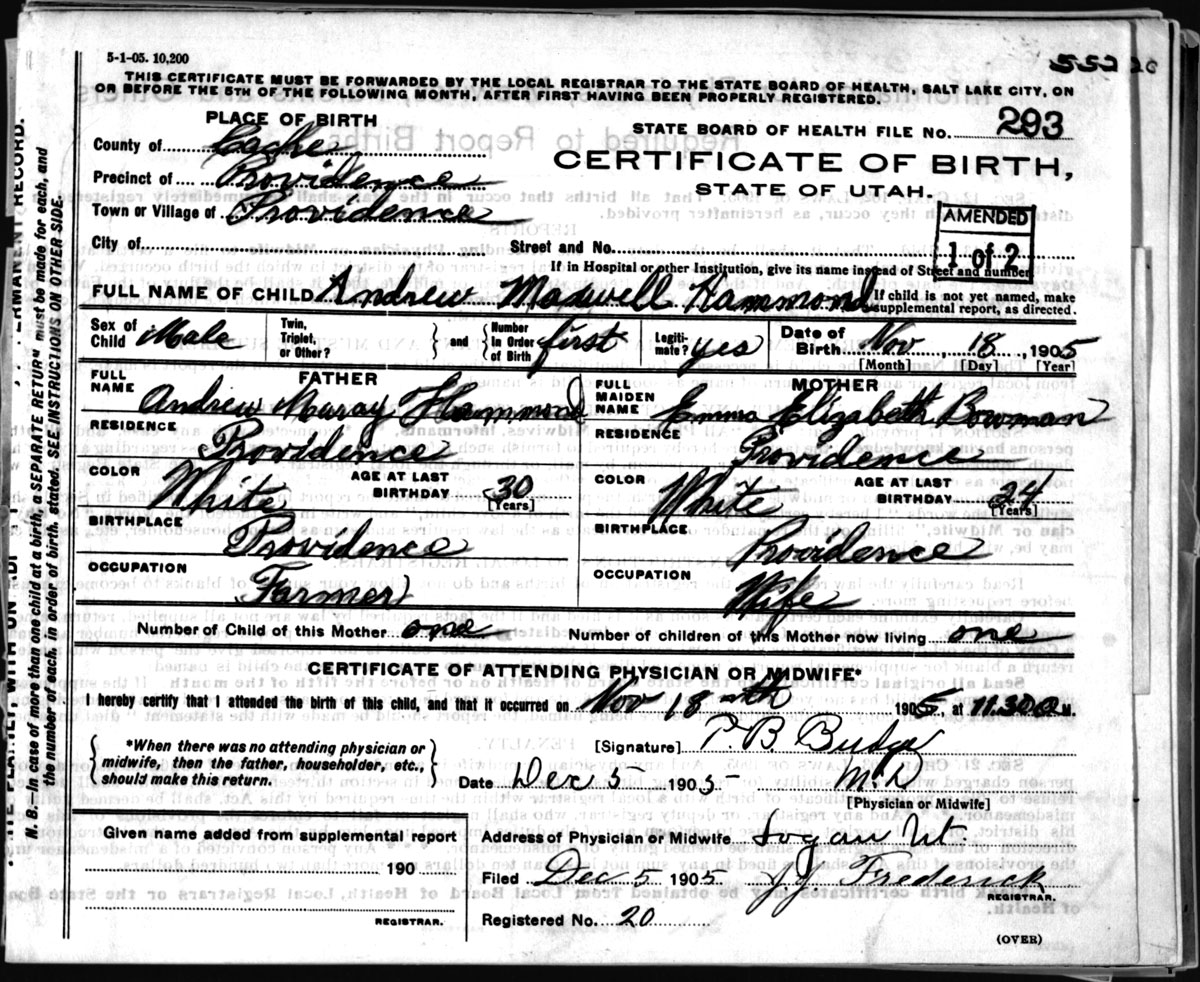 5-1-05. 10,200
552 20
THIS CERTIFICATE MUST BE FORWARDED BY THE LOCAL REGISTRAR TO THE STATE BOARD OF HEALTH, SALT LAKE CITY, ON
OR BEFORE THE 5TH OF THE FOLLOWING MONTH, AFTER FIRST HAVING BEEN PROPERLY REGISTERED.
PLACE OF BIRTH
STATE BOARD OF HEALTH FILE NO. 293
County of Cache
CERTIFICATE OF BIRTH,
Precinct of Providence
STATE OF UTAH.
Town or Village of Providence
AMENDED
1 of 2
City of Street and No.
If in Hospital or other Institution, give its name instead of Street and number.
FULL NAME OF CHILD Andrew Maxwell Hammond If child is not yet named, make supplemental report, as directed.
Sex of Child Male Twin, Triplet, or Other? and Number In Order of Birth first Legiti- mate? yes Date of Birth Nov, 18, 1905
[Month] [Day] [Year]
FATHER
FULL NAME Andrew Muray Hammond
RESIDENCE Providence
COLOR White AGE AT LAST BIRTHDAY 30 [Years]
BIRTHPLACE Providence
OCCUPATION Farmer
MOTHER
FULL MAIDEN NAME Emma Elizabeth Bowman
RESIDENCE Providence
COLOR White AGE AT LAST BIRTHDAY 24 [Years]
BIRTHPLACE Providence
OCCUPATION Wife
Number of Child of this Mother one Number of children of this Mother now living one
CERTIFICATE OF ATTENDING PHYSICIAN OR MIDWIFE*
I hereby certify that I attended the birth of this child, and that it occurred on Nov 18 1905, at 11.30 M.
*When there was no attending physician or
midwife, then the father, householder, etc.,
should make this return.
[Signature] T. B. Budge
Date Dec 5 1905 M.D
[Physician or Midwife]
Given name added from supplemental report
190
REGISTRAR.
Address of Physician or Midwife Logan Ut.
Filed Dec 5 1905 J.J. Frederick
REGISTRAR.
Registered No. 20
(OVER)
N. B.—In case of more than one child at a birth, a SEPARATE RETURN must be made for each, and
the number of each, in order of birth, stated. SEE INSTRUCTIONS ON OTHER SIDE.